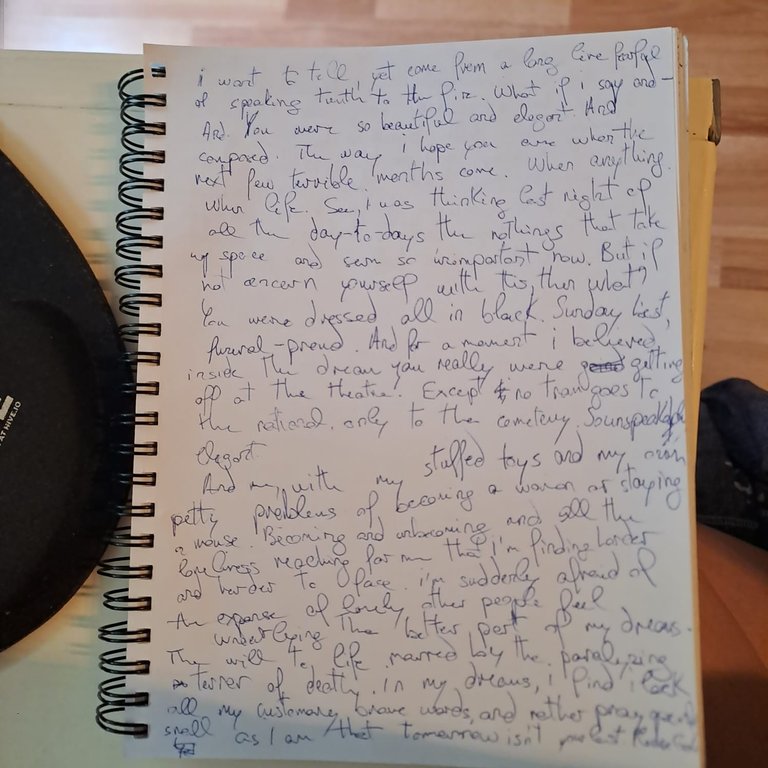 i want to tell, yet come from a long line fearful
of speaking truth to the fire. What if i say and-
And. You were so beautiful and elegant. And
composed. The way i hope you are when the
next few terrible months come. When anything.
When life. See, i was thinking last night of
all the day-to-days the nothings that take
up space and seem so unimportant now. But if
not concern yourself with this, then what?
You were dressed all in black. Sunday best,
funeral-proud. And for a moment i believed,
inside the dream you really were getting
off at the theatre. Except no tram goes to
the national. only to the cemetery. So unspeakably
elegant.
And me, with my stuffed toys and my own
petty problems of becoming a woman or staying
a mouse. Becoming and unbecoming and all the
loneliness reaching for me that i'm finding harder
and harder to face. i'm suddenly afraid of
An expanse of lonely other people feel
underlying the better part of my dreams.
The will to life marred by the paralyzing
terror of death. in my dreams, i find i lack
all my customary brave words, and rather pray
small as I am that tomorrow isn't your last
AT HIVE.IO